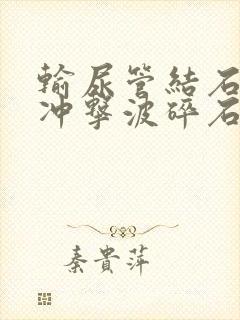 輸尿管結石
沖擊波碎石
秦貴萍